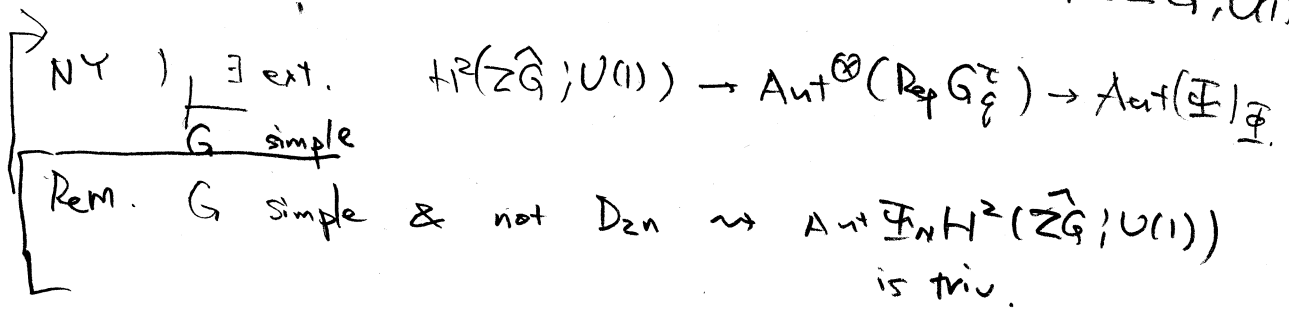 NY ) ∃ ext. H²(ẐG ; U(1)) → Aut^⊗(Rep G_q^τ) → Aut(Φ)
G simple
Rem. G simple & not D_{2n} ⇝ Aut Φ ↷ H²(ẐG ; U(1))
is triv.